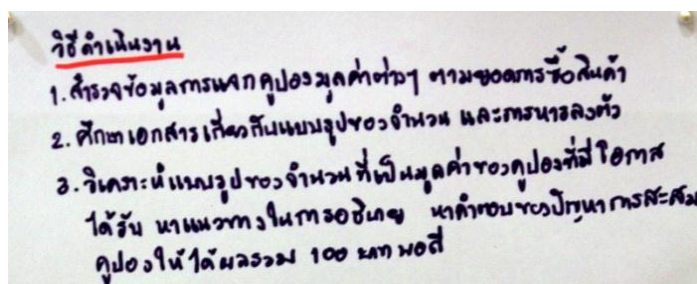 วิธีดำเนินงาน
1. สำรวจข้อมูลการแจกคูปองมูลค่าต่างๆ ตามยอดการซื้อสินค้า
2. ศึกษาเอกสารเกี่ยวกับแบบรูปของจำนวน และการหารลงตัว
3. วิเคราะห์แบบรูปของจำนวนที่เป็นมูลค่าของคูปองที่มีโอกาส
ได้รับ หาแนวทางในการอธิบาย หาคำตอบของปัญหาการสะสม
คูปองให้ได้ผลรวม 100 บาท พอดี